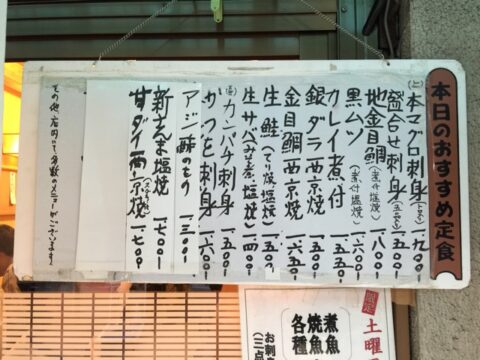 本日のおすすめ定食
本マグロ刺身 一、九〇〇
盛合せ刺身 一、五〇〇
地金目鯛(煮付 塩焼) 一、八〇〇
黒ムツ(煮付 塩焼) 一、六〇〇
カレイ煮付 一、五五〇
銀ダラ西京焼 一、五〇〇
金目鯛西京焼 一、六五〇
生鮭(てり焼 塩焼) 一、五〇〇
生サバ(みそ煮 塩焼) 一、四〇〇
カンパチ刺身 一、五〇〇
かつを刺身 一、六〇〇
アジ酢のもの 一、三〇〇
新さんま塩焼 一、七〇〇
甘ダイ西京焼 一、七〇〇
その他、店内にて多数のメニューがございます
限定
土曜
煮魚
焼魚
各種
お刺
(三点